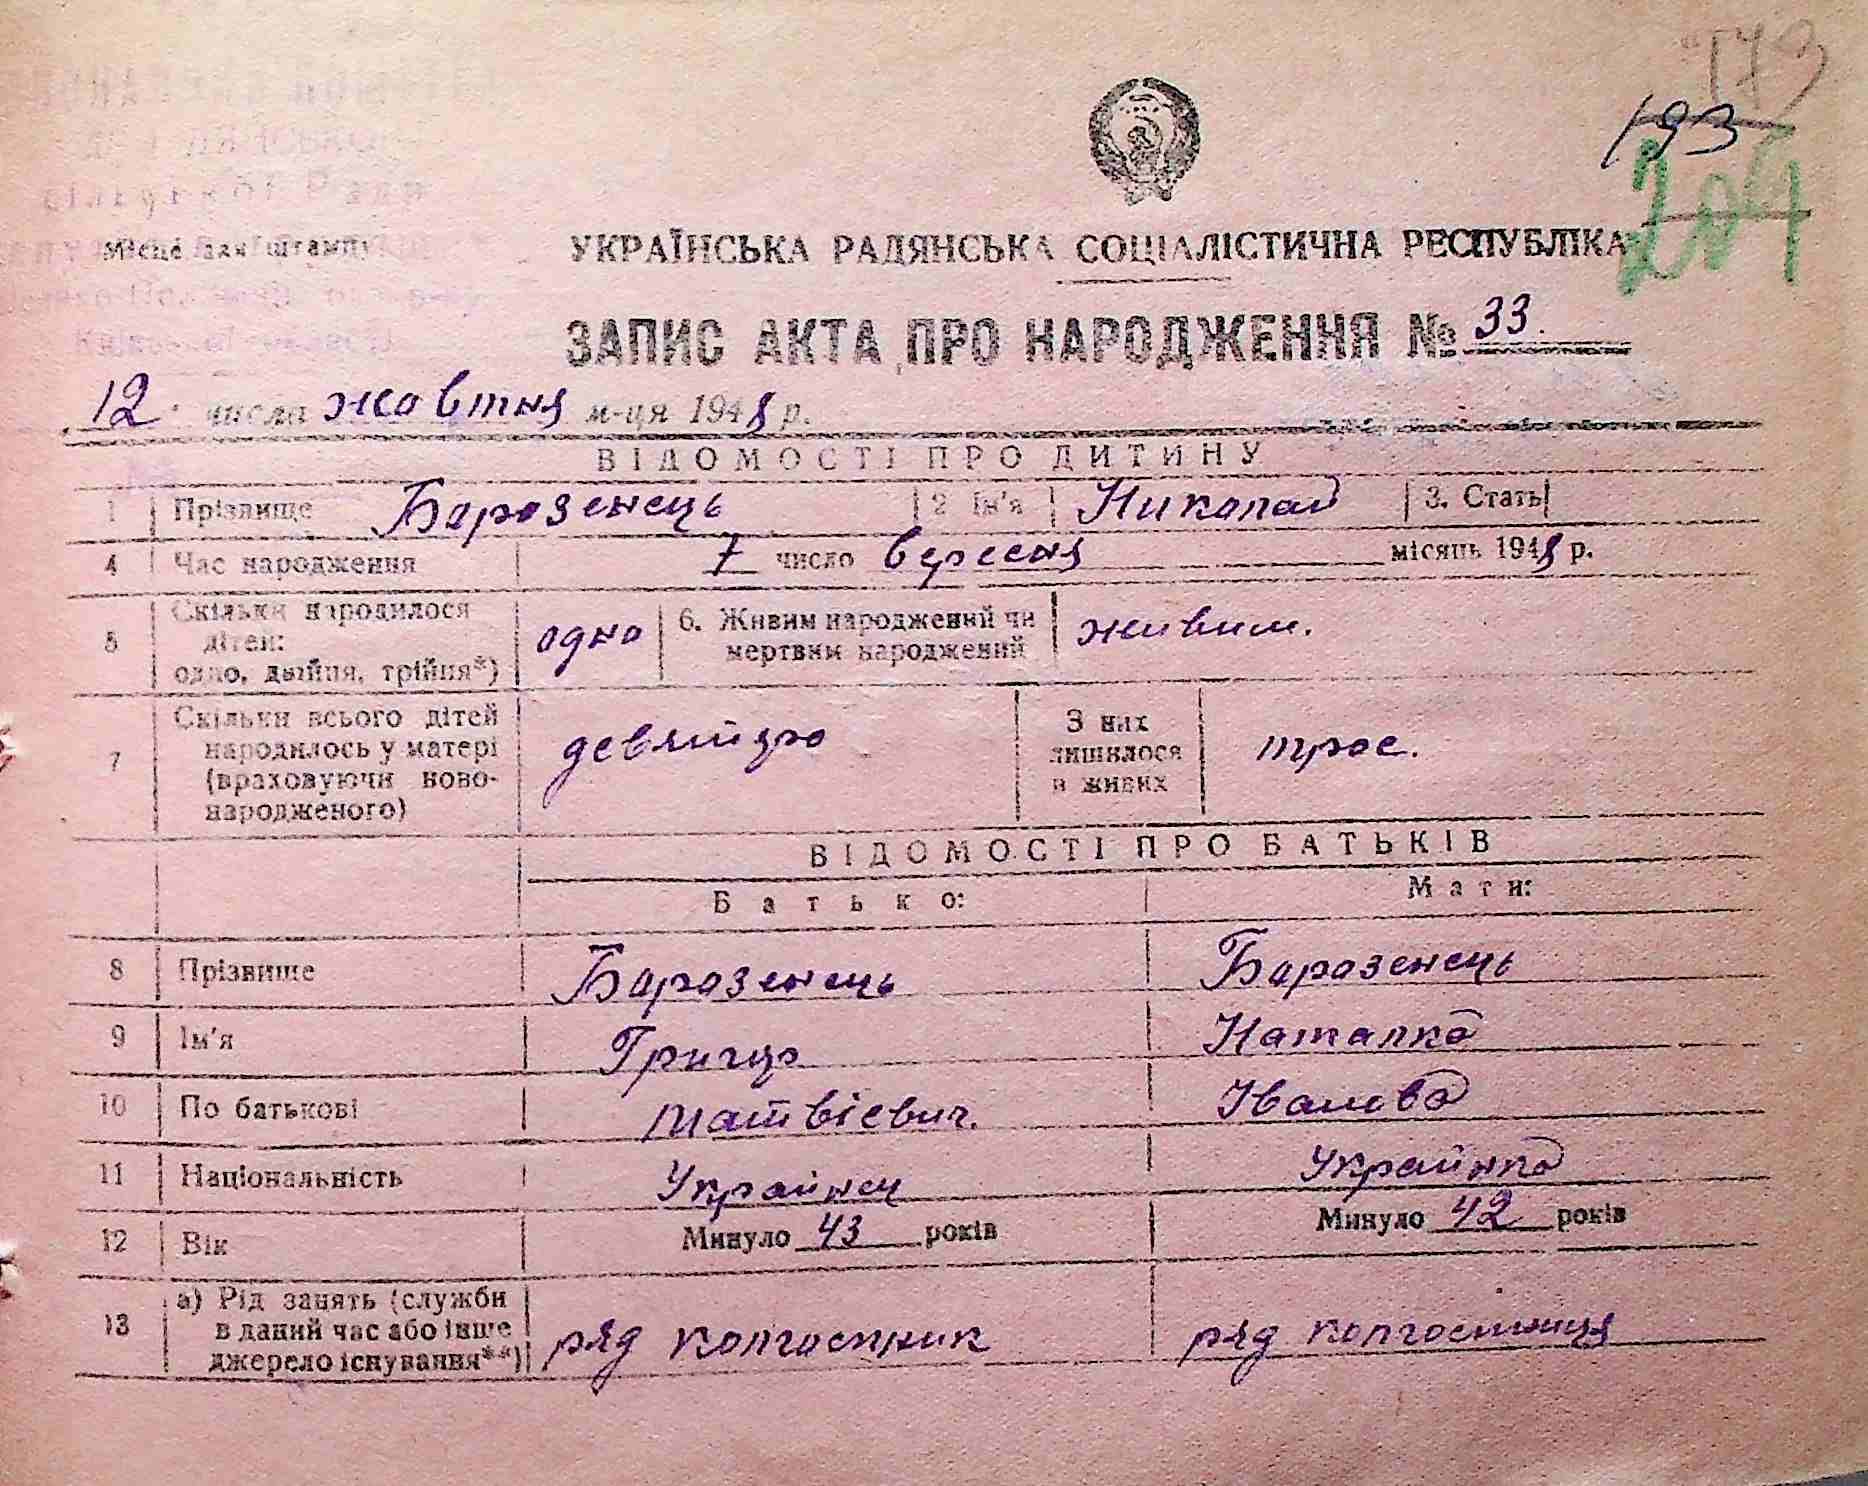 179
193
204
Місце для штампу
УКРАЇНСЬКА РАДЯНСЬКА СОЦІАЛІСТИЧНА РЕСПУБЛІКА
ЗАПИС АКТА ПРО НАРОДЖЕННЯ № 33.
12 числа жовтня м-ця 1948 р.
ВІДОМОСТІ ПРО ДИТИНУ
1 Прізвище Барозенець 2 Ім'я Николай 3. Стать
4 Час народження 7 число вересня місяць 1948 р.
5 Скільки народилося дітей: одно, двійня, трійня*) одно 6. Живим народжений чи мертвим народжений живим.
7 Скільки всього дітей народилось у матері (враховуючи ново-народженого) девятеро З них лишилося в живих троє.
ВІДОМОСТІ ПРО БАТЬКІВ
Батько: Мати:
8 Прізвище Барозенець Барозенець
9 Ім'я Грицко Наталка
10 По батькові Матвієвич. Іванова
11 Національність Українец Українка
12 Вік Минуло 43 років Минуло 42 років
13 а) Рід занять (служби в даний час або інше джерело існування**) ряд колгоспник ряд колгоспниця